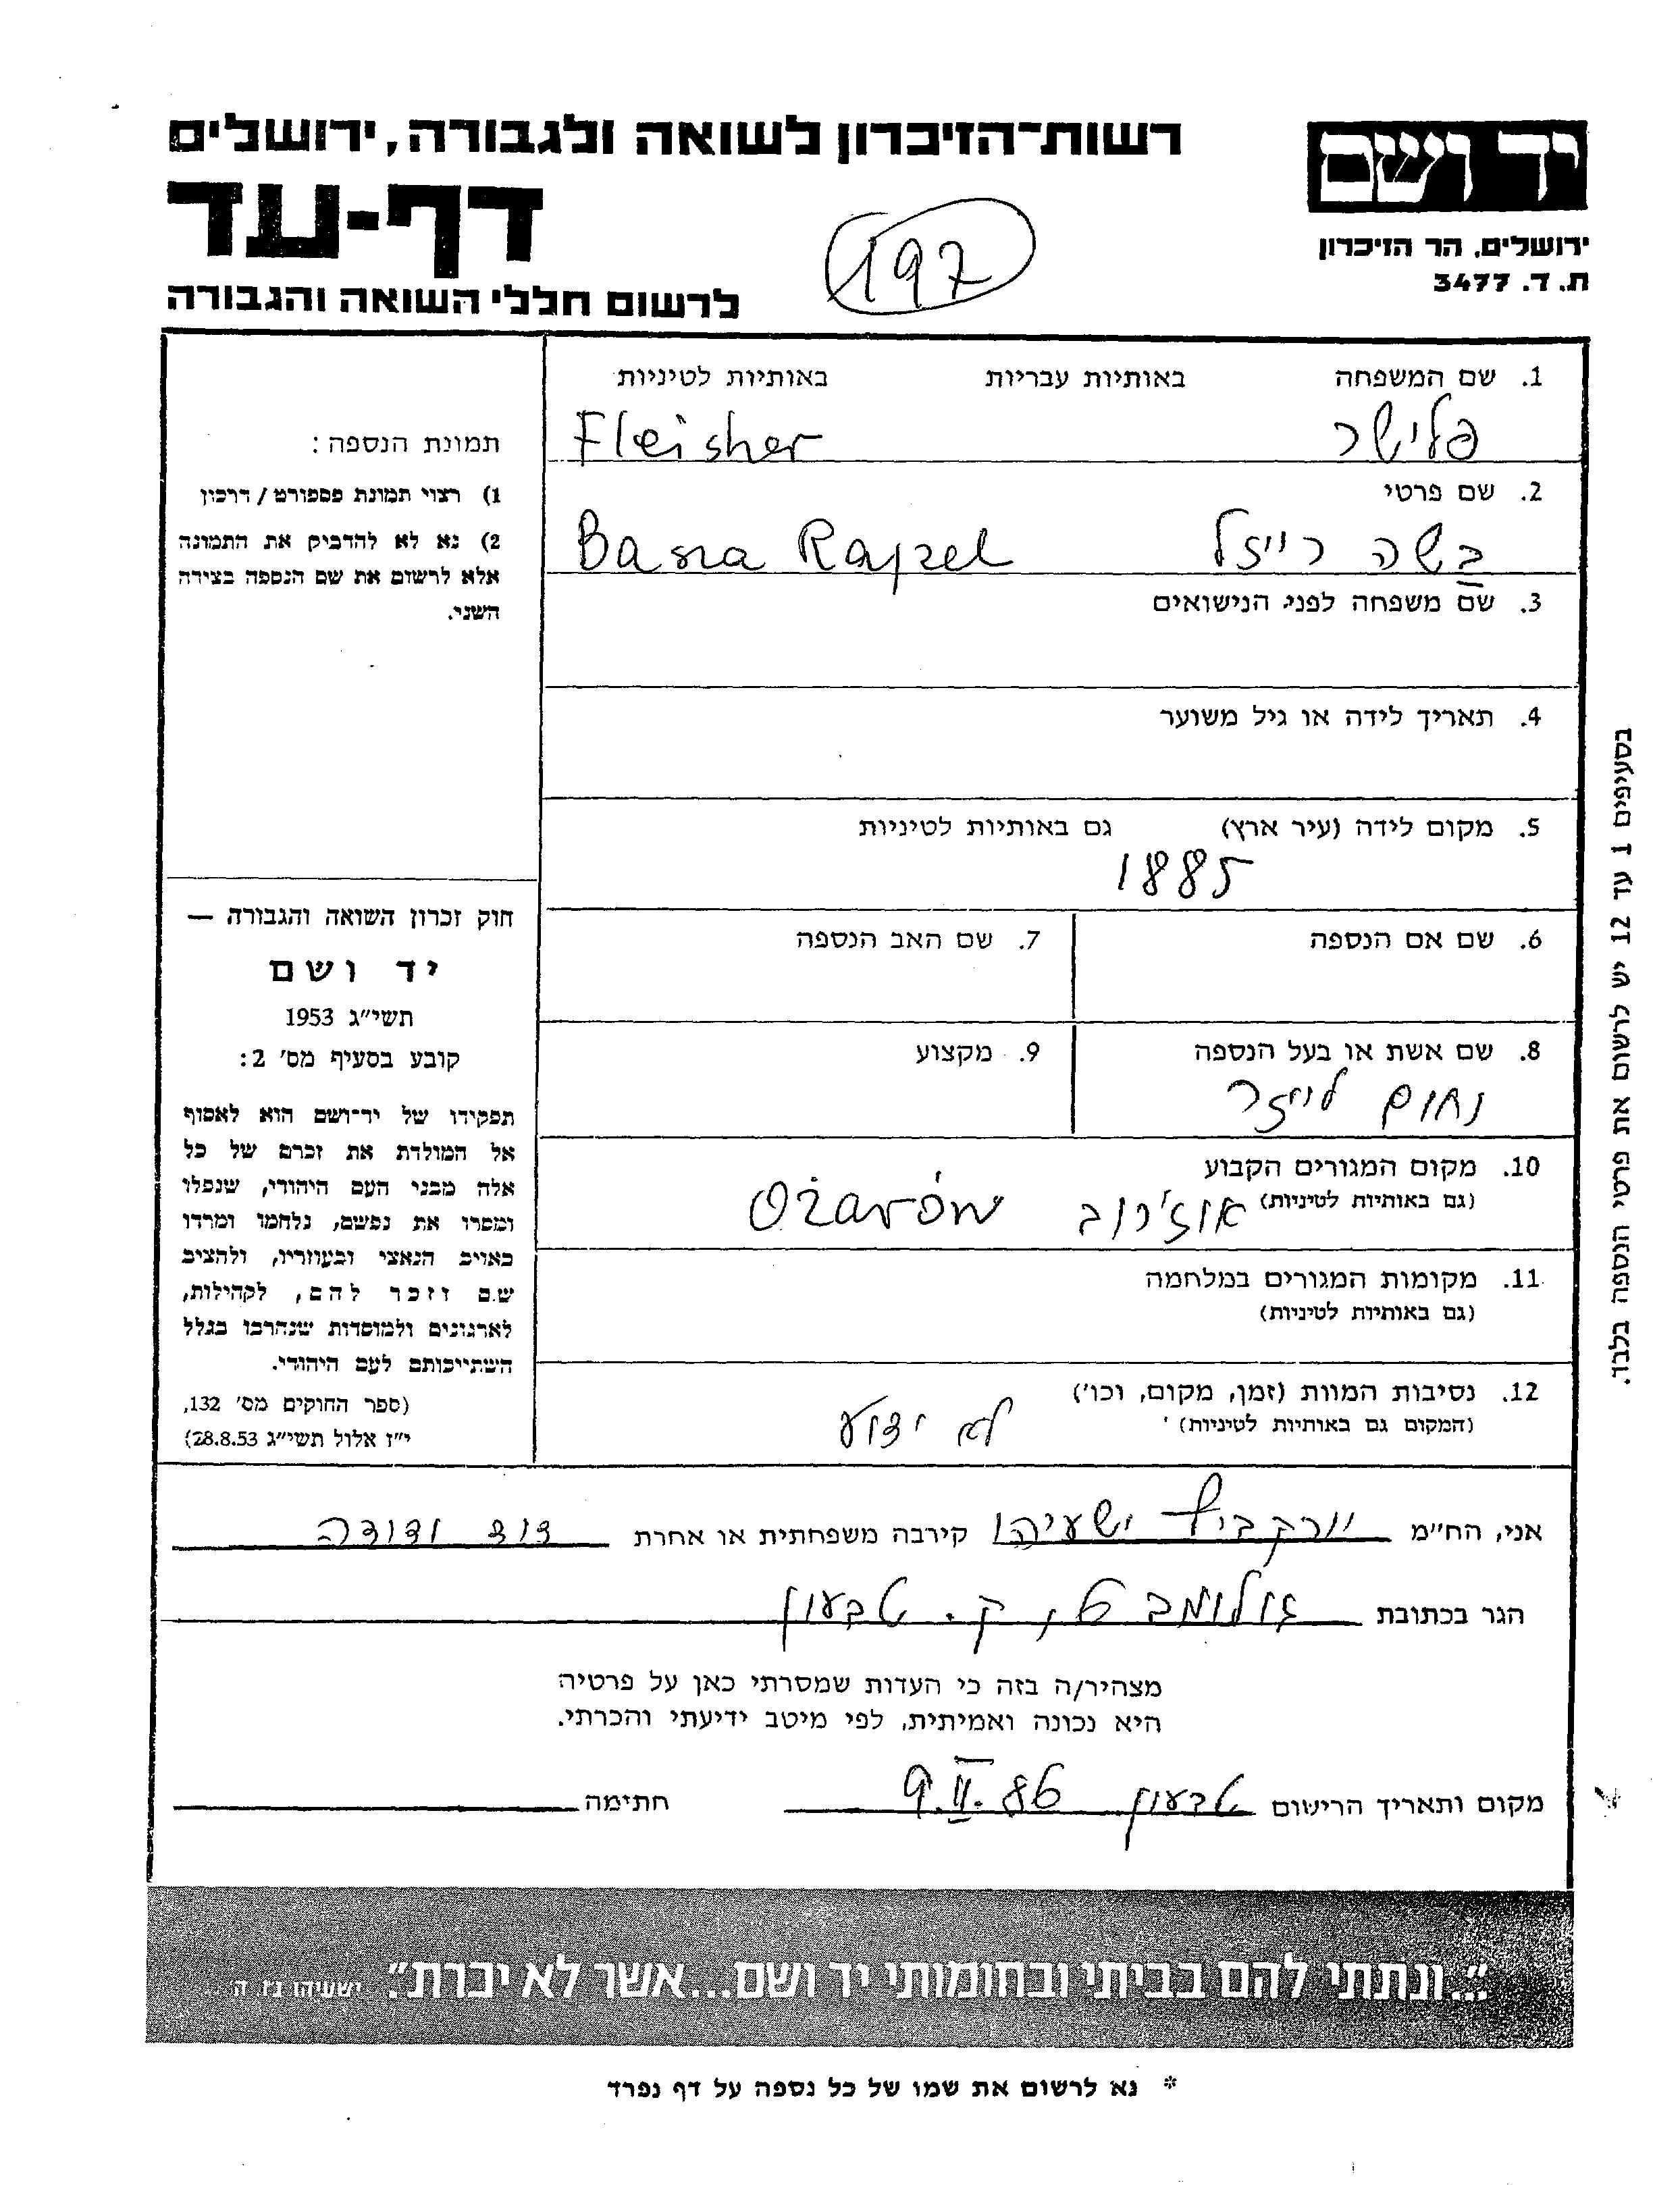 רשות־הזיכרון לשואה ולגבורה, ירושלים
יד ושם
דף-עד
197
ירושלים, הר הזיכרון
ת. ד. 3477
לרשום חללי השואה והגבורה
1. שם המשפחה באותיות עבריות באותיות לטיניות
פלישר Fleisher
2. שם פרטי
בשה רייזל Basia Rajzel
3. שם משפחה לפני הנישואים
4. תאריך לידה או גיל משוער
5. מקום לידה (עיר ארץ) גם באותיות לטיניות
1885
6. שם אם הנספה
7. שם האב הנספה
8. שם אשת או בעל הנספה
נחום לייזר
9. מקצוע
10. מקום המגורים הקבוע
(גם באותיות לטיניות) אוז'רוב Ożarów
11. מקומות המגורים במלחמה
(גם באותיות לטיניות)
12. נסיבות המוות (זמן, מקום, וכו')
(המקום גם באותיות לטיניות)
לא ידוע
תמונת הנספה:
1) רצוי תמונת פספורט / דרכון
2) נא לא להדביק את התמונה
אלא לרשום את שם הנספה בצידה
השני.
חוק זכרון השואה והגבורה —
יד ושם
תשי"ג 1953
קובע בסעיף מס' 2:
תפקידו של יד־ושם הוא לאסוף
אל המולדת את זכרם של כל
אלה מבני העם היהודי, שנפלו
ומסרו את נפשם, נלחמו ומרדו
באויב הנאצי ובעוזריו, ולהציב
שם וזכר להם, לקהילות,
לארגונים ולמוסדות שנהרבו בגלל
השתייכותם לעם היהודי.
(ספר החוקים מס' 132,
י"ז אלול תשי"ג 28.8.53)
בסעיפים 1 עד 12 יש לרשום את פרטי הנספה בלבד.
אני, הח"מ ישעיהו קירבה משפחתית או אחרת דוד ודודה
הגר בכתובת גולומב 6, ק. טבעון
מצהיר/ה בזה כי העדות שמסרתי כאן על פרטיה
היא נכונה ואמיתית, לפי מיטב ידיעתי והכרתי.
מקום ותאריך הרישום טבעון 9.II.86 חתימה
"...ונתתי להם בביתי ובחומותי יד ושם...אשר לא יכרת". ישעיהו נז, ה
* נא לרשום את שמו של כל נספה על דף נפרד